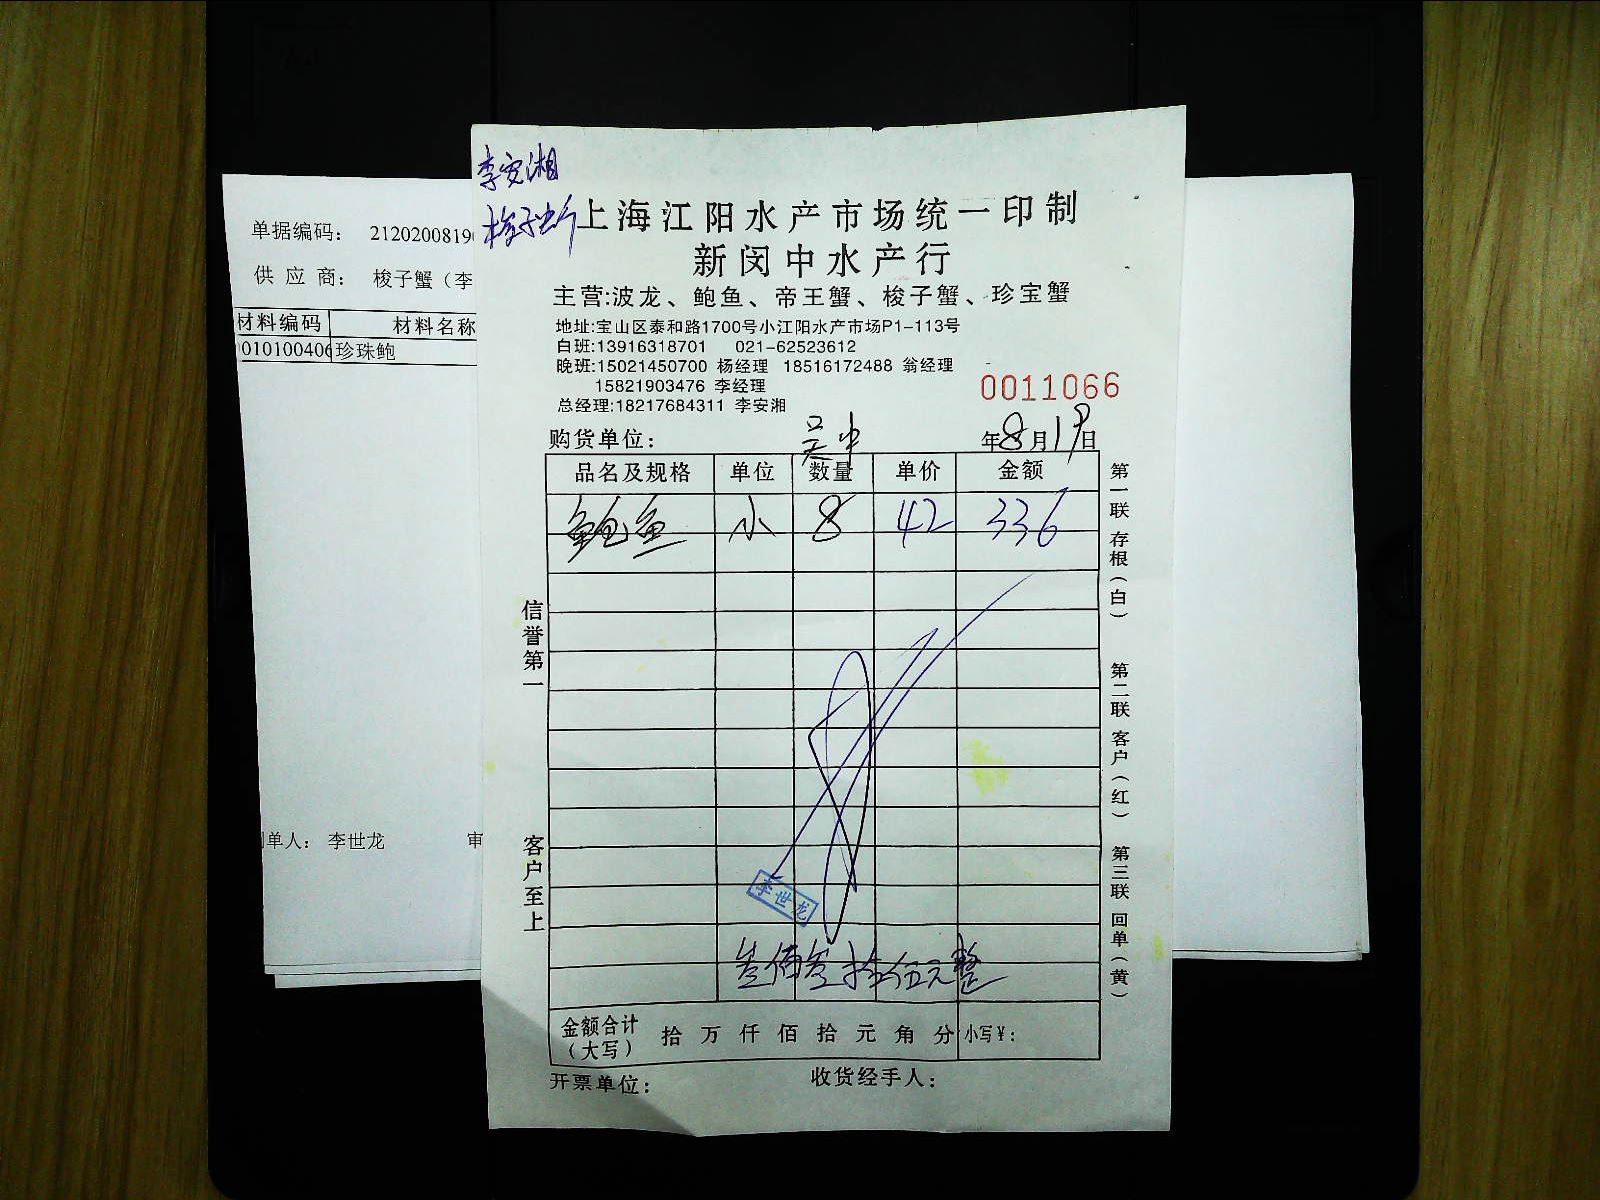 李安湘
梭子蟹
上海江阳水产市场统一印制
新闵中水产行
主营:波龙、鲍鱼、帝王蟹、梭子蟹、珍宝蟹
地址:宝山区泰和路1700号小江阳水产市场P1-113号
白班:13916318701 021-62523612
晚班:15021450700 杨经理 18516172488 翁经理
15821903476 李经理
总经理:18217684311 李安湘
0011066
购货单位: 年8月19日
品名及规格 单位 数量 单价 金额
鲍鱼 小 8 42 336
李世龙
叁佰叁拾伍元整
金额合计(大写) 拾 万 仟 佰 拾 元 角 分 小写¥:
开票单位: 收货经手人:
信誉第一
客户至上
第一联 存根(白)
第二联 客户(红)
第三联 回单(黄)
单据编码: 2120200819
供 应 商: 梭子蟹(李
材料编码 材料名称
010100406 珍珠鲍
单人: 李世龙 审